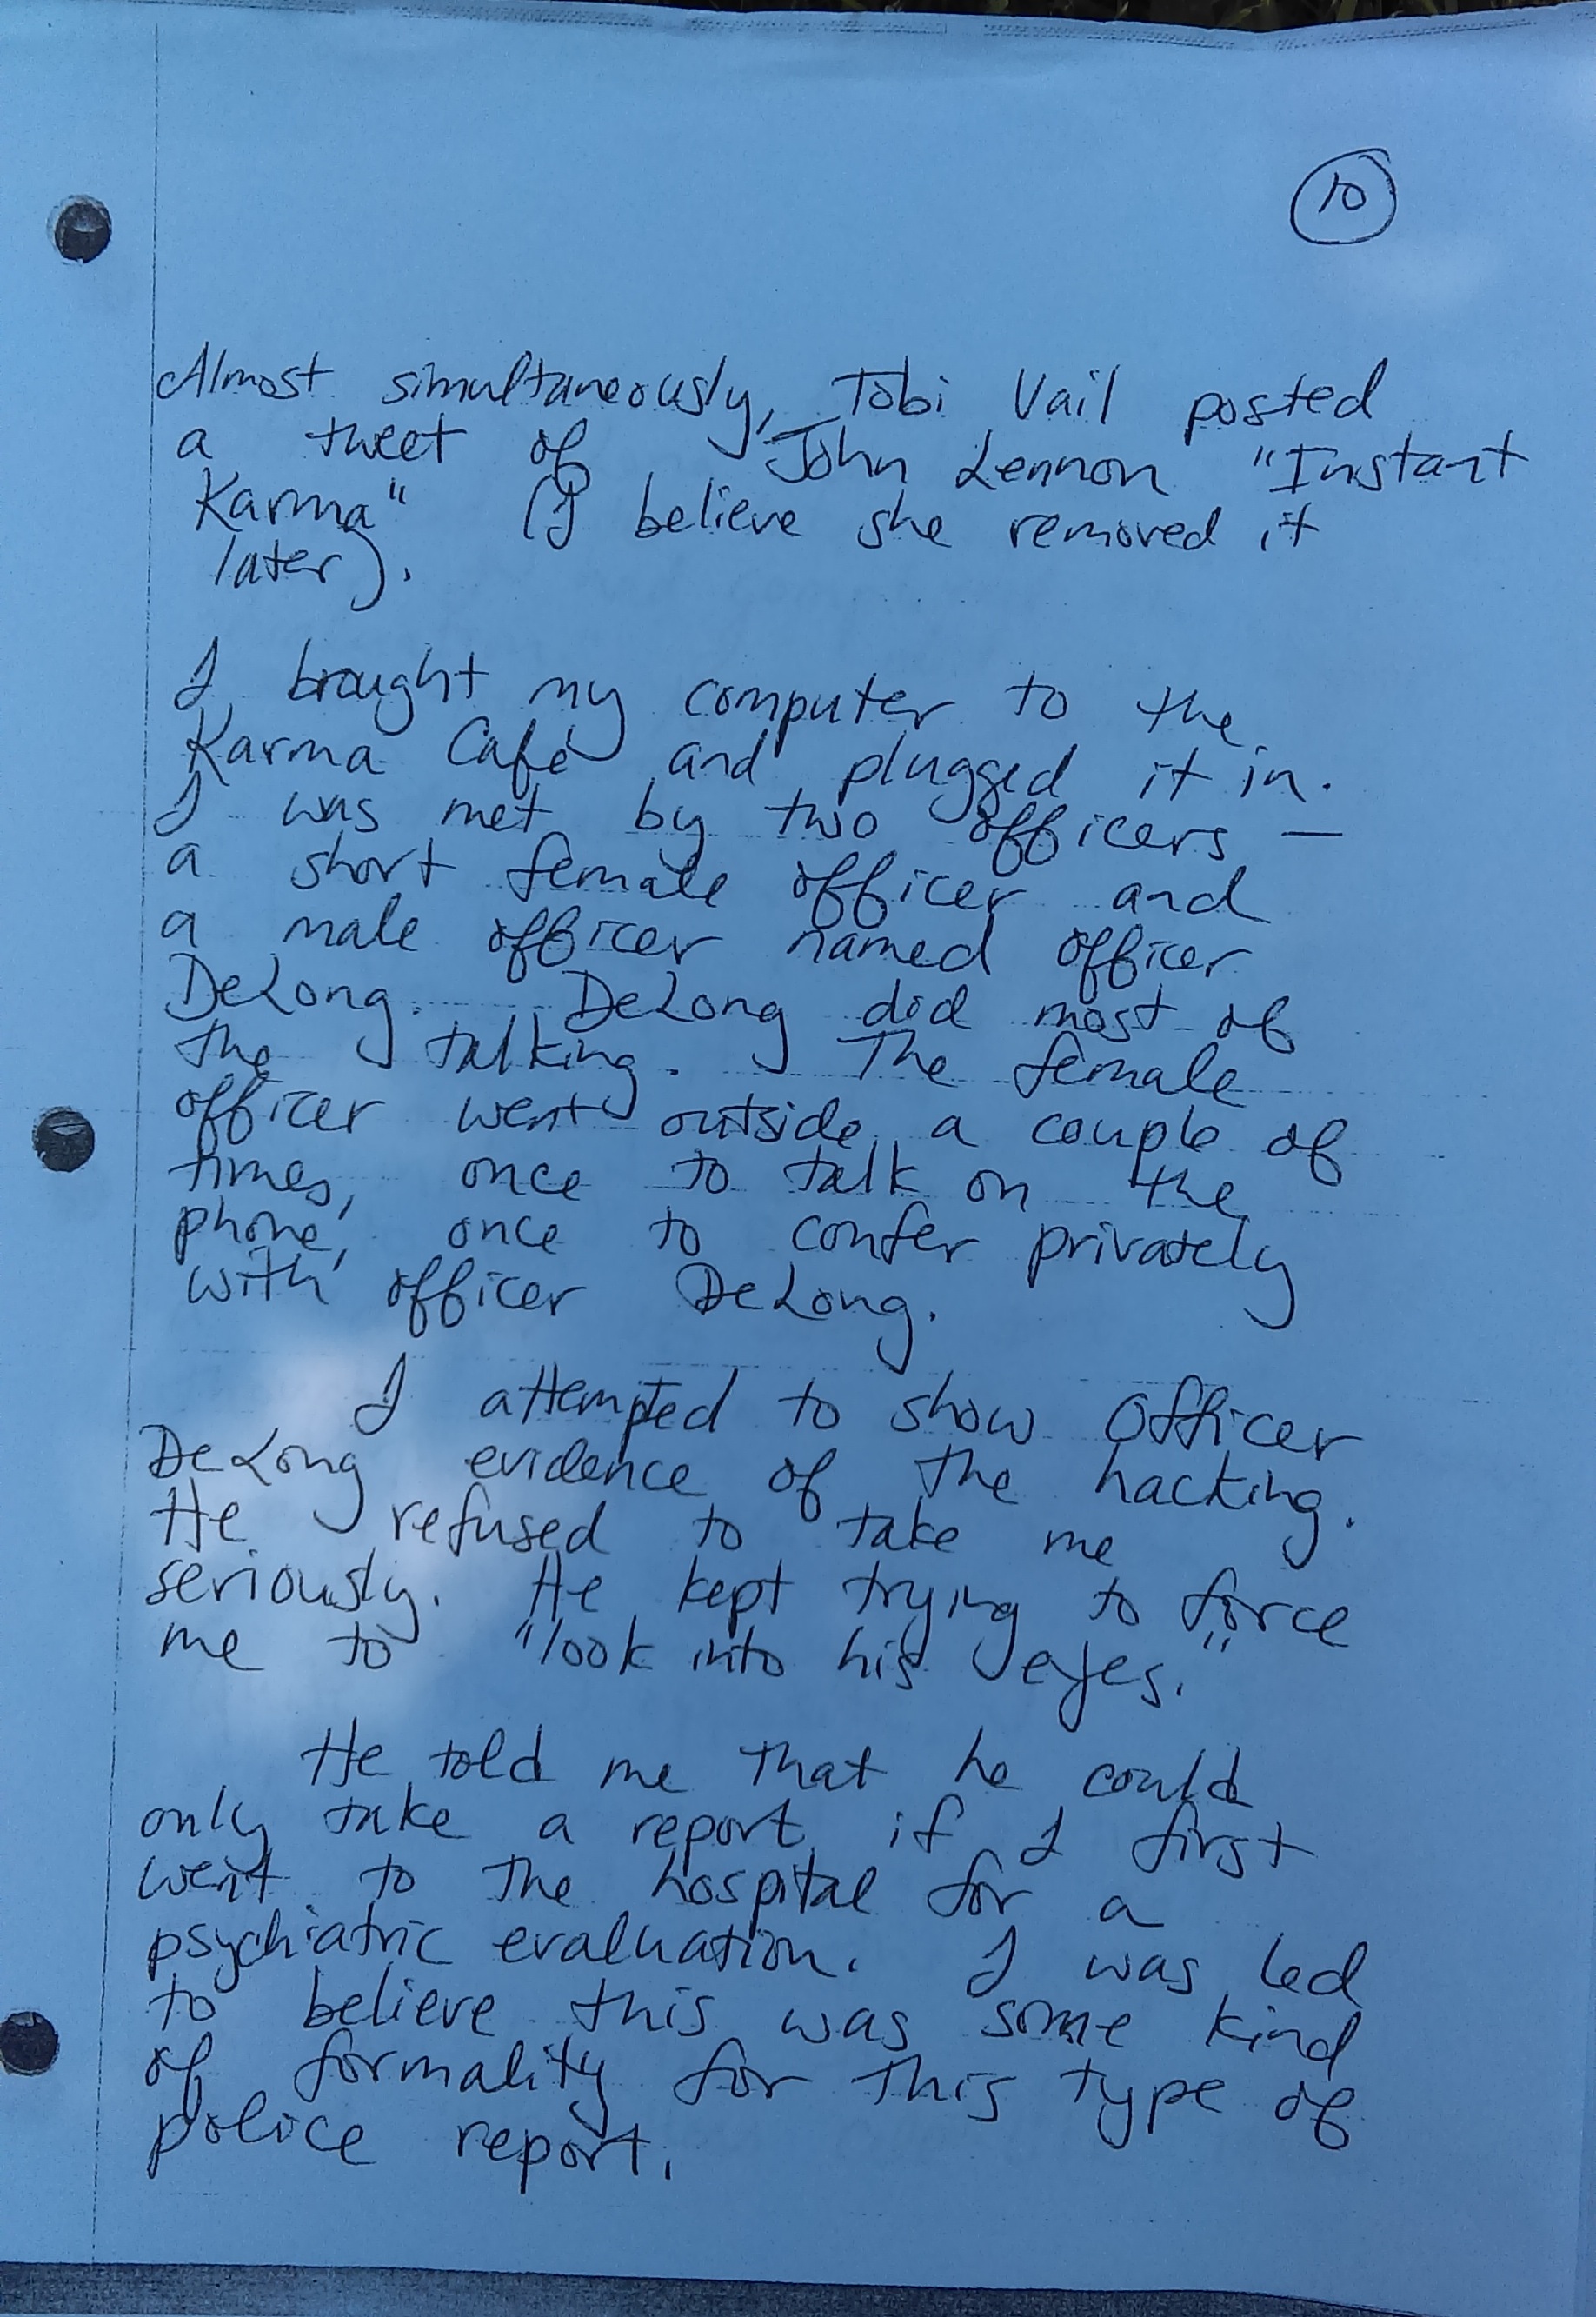 10
Almost simultaneously, Tobi Vail posted
a tweet of John Lennon "Instant
Karma" (I believe she removed it
later).
I brought my computer to the
Karma Café and plugged it in.
I was met by two officers —
a short female officer and
a male officer named officer
DeLong. DeLong did most of
the talking. The female
officer went outside a couple of
times, once to talk on the
phone, once to confer privately
with officer DeLong.
I attempted to show Officer
DeLong evidence of the hacking.
He refused to take me
seriously. He kept trying to force
me to "look into his eyes."
He told me that he could
only take a report if I first
went to the hospital for a
psychiatric evaluation. I was led
to believe this was some kind
of formality for this type of
police report.